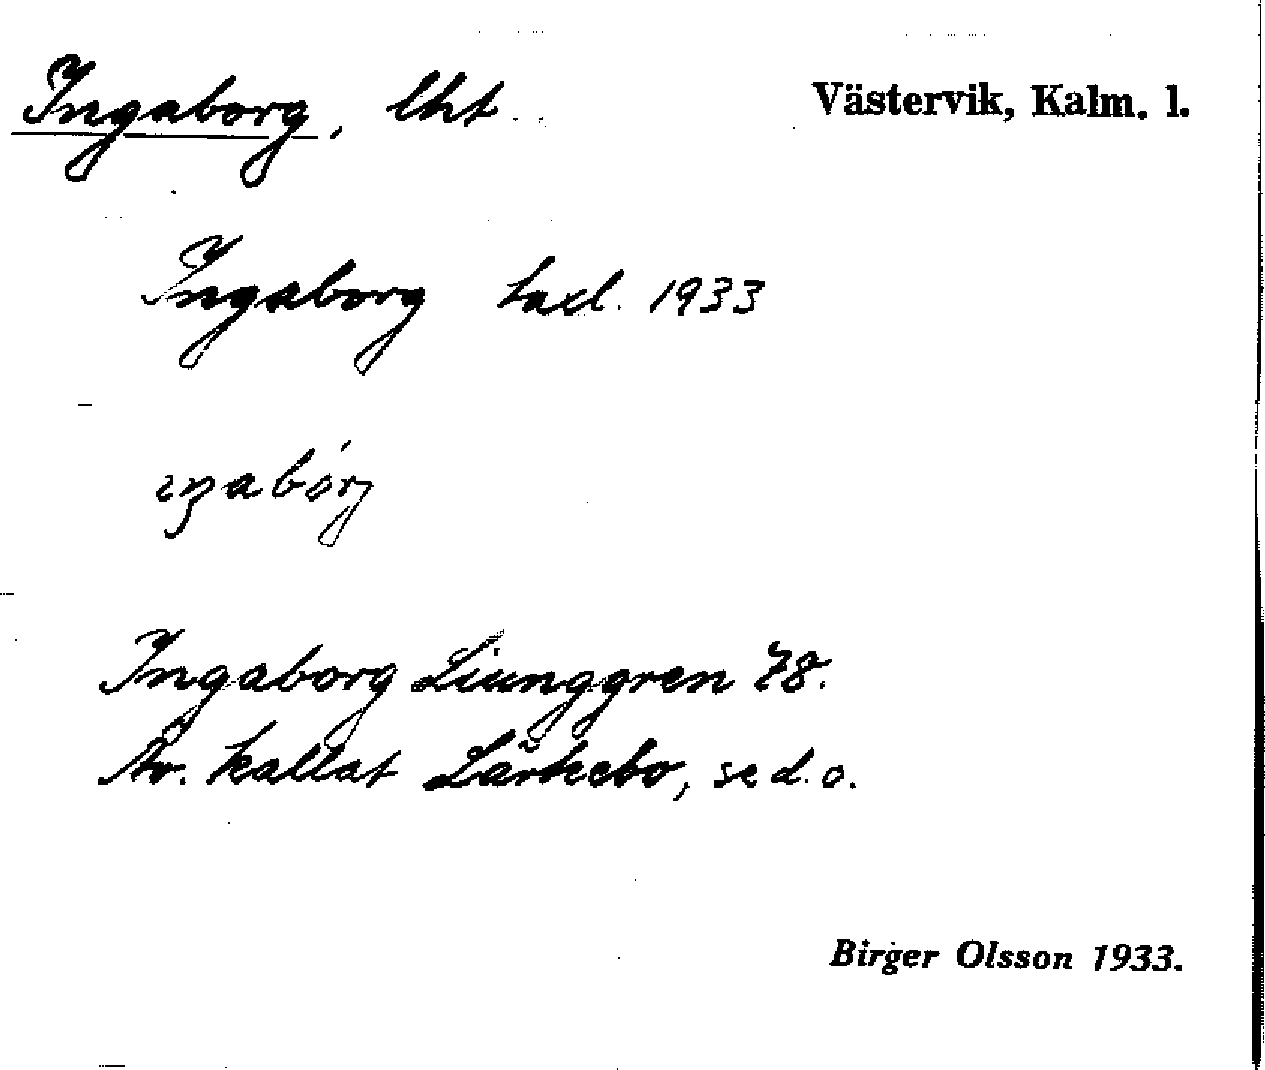 Ingaborg, lht Västervik, Kalm. l.
Ingaborg taxl. 1933
ıŋabórj
Ingaborg Liunggren 78.
Äv. kallat Lärkebo, se d. o.
Birger Olsson 1933.